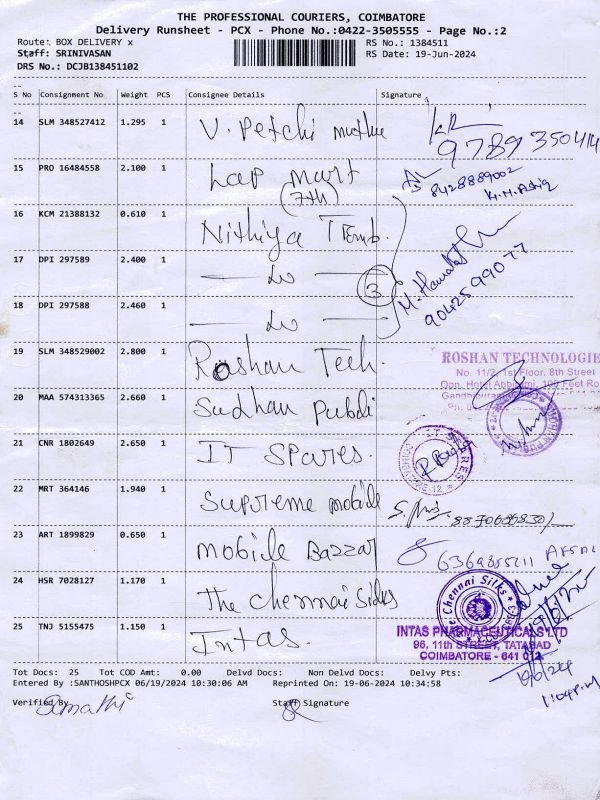 THE PROFESSIONAL COURIERS, COIMBATORE
Delivery Runsheet - PCX - Phone No.:0422-3505555 - Page No.:2
Route: BOX DELIVERY x RS No.: 1384511
Staff: SRINIVASAN RS Date: 19-Jun-2024
DRS No.: DCJB138451102
S No Consignment No Weight PCS Consignee Details Signature
14 SLM 348527412 1.295 1 V. Petchi muthu
9789350414
15 PRO 16484558 2.100 1 Lap Mart
(7th)
8428889002
16 KCM 21388132 0.610 1 Nithiya
17 DPI 297589 2.400 1
3
9042599077
18 DPI 297588 2.460 1
19 SLM 348529002 2.800 1 Roshan Tech.
ROSHAN TECHNOLOGIE
No. 11/2, 1st Floor, 8th Street
Opp. Hotel 100 Feet Ro
20 MAA 574313365 2.660 1 Sudhan
21 CNR 1802649 2.650 1 IT Spares.
22 MRT 364146 1.940 1 Supreme mobile
23 ART 1899829 0.650 1 Mobile Bazzar
24 HSR 7028127 1.170 1 The Chennai Silks
Chennai Silks
25 TNJ 5155475 1.150 1 Intas.
INTAS PHARMACEUTICALS LTD
96, 11th STREET, TATABAD
COIMBATORE - 641 012
Tot Docs: 25 Tot COD Amt: 0.00 Delvd Docs: Non Delvd Docs: Delvy Pts:
Entered By :SANTHOSHPCX 06/19/2024 10:30:06 AM Reprinted On: 19-06-2024 10:34:58
1:04 P.M
Verified By Staff Signature